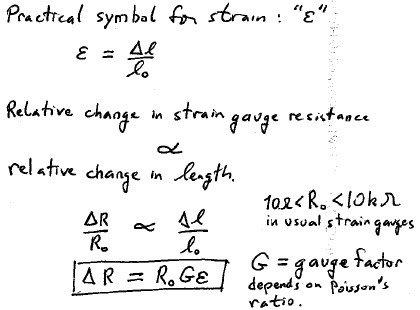 Practical symbol for strain : "ε"
ε = Δl/l₀
Relative change in strain gauge resistance
∝
relative change in length.
ΔR/R₀ ∝ Δl/l₀
10Ω<R₀<10kΩ
in usual strain gauges
ΔR = R₀Gε
G = gauge factor
depends on Poisson's
ratio.